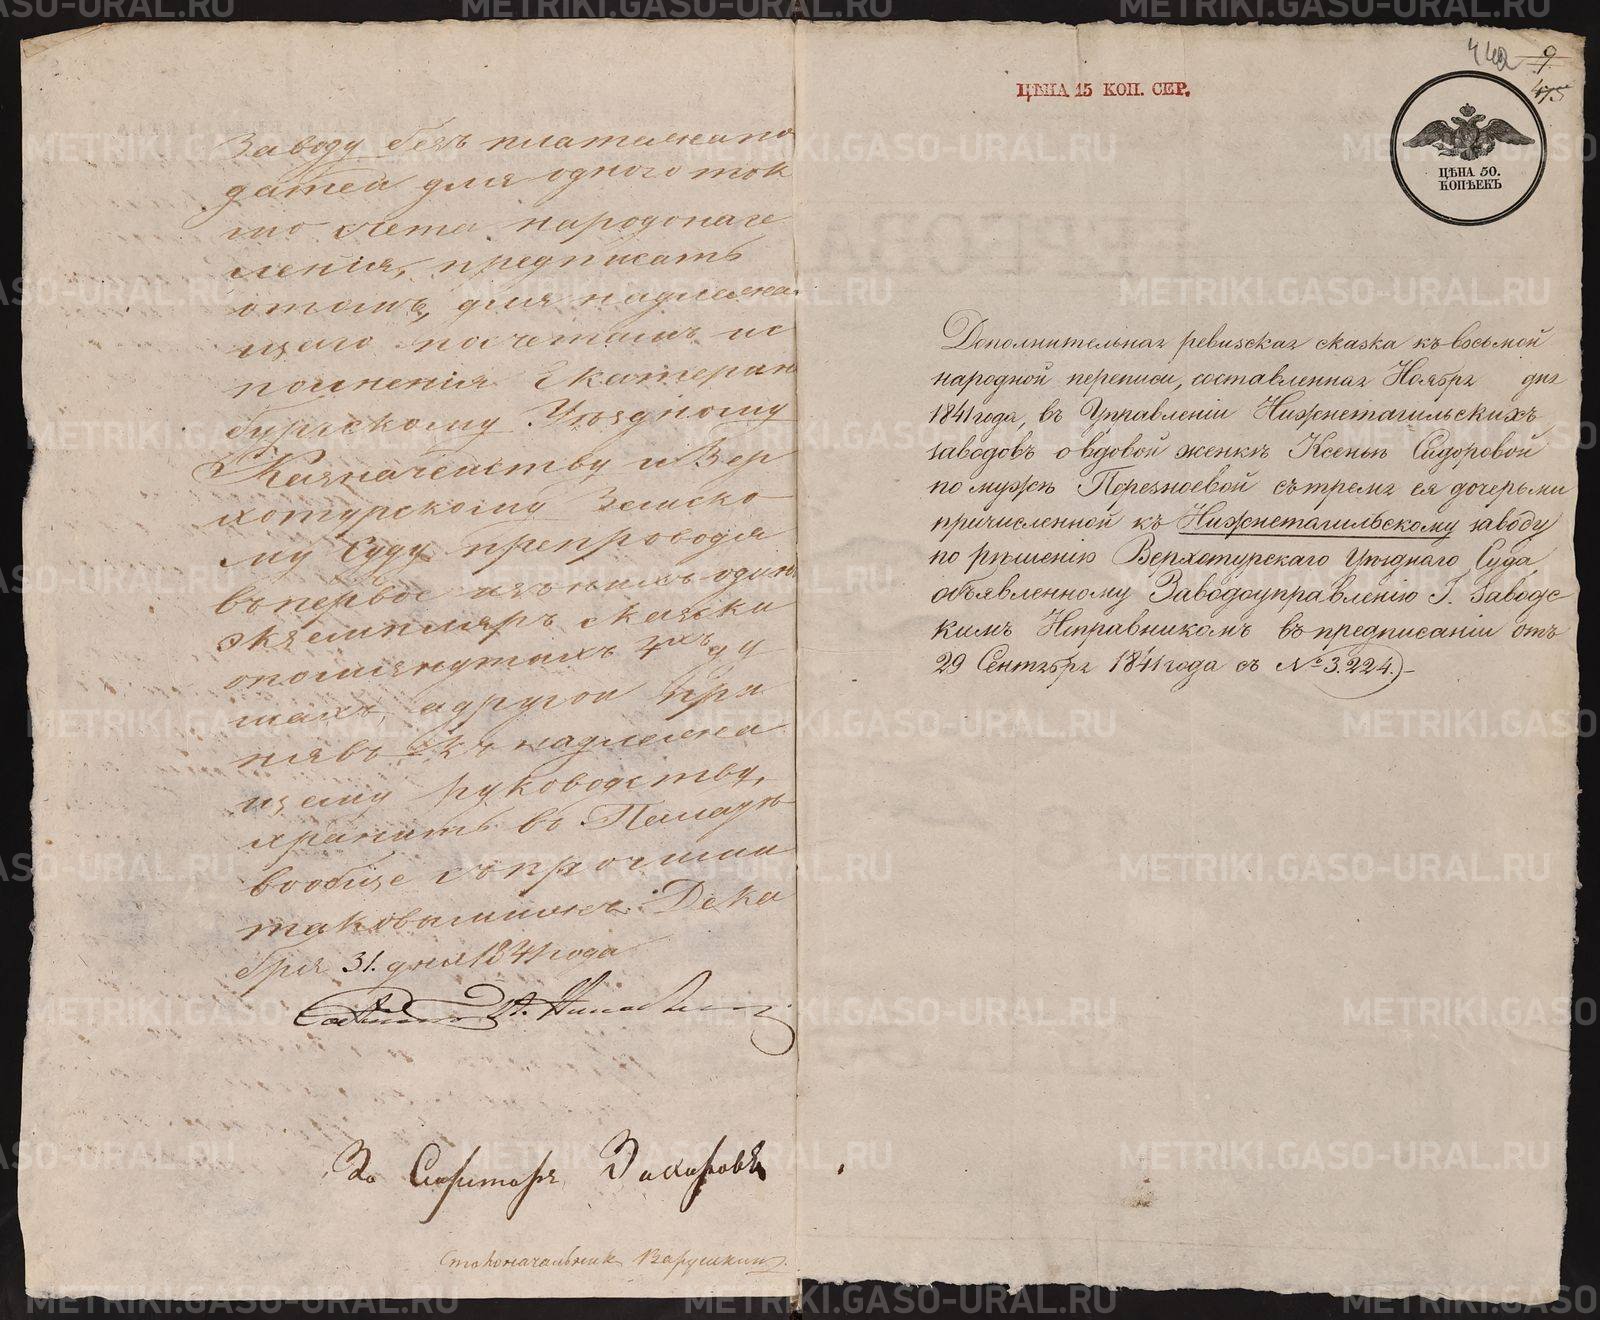 Заводу безъ платежа по
датей для одного ток
мо счета народонасе
ленія, предписать
о томъ, для надлежа
щаго по счетамъ ис
полненія Екатерин
бургскому Уѣздному
Казначейству и Вер
хотурскому Земско
му Суду препроводя
въ первое изъ нихъ одинъ
экземпляръ сказки
о помянутыхъ 4хъ ду
шахъ, а другой при
нявъ къ надлежа
щему руководству,
хранить въ Палатѣ
вообще съ прочими
таковыми же. Дека
бря 31. дня 1841 года
За Секретаря Захаровъ
Столоначальникъ
440 9
475
ЦѢНА 15 КОП. СЕР.
ЦѢНА 50.
КОПѢЕКЪ
Дополнительная ревизская сказка къ восьмой
народной переписи, составленная Ноября дня
1841 года, въ Управленіи Нижнетагильскихъ
заводовъ о вдовой женкѣ Ксеньѣ Сидоровой
по мужѣ Порезноевой съ тремя ея дочерьми
причисленной къ Нижнетагильскому заводу
по рѣшенію Верхотурскаго Уѣзднаго Суда,
объявленному Заводоуправленію Г. Заводс
кимъ Исправникомъ въ предписаніи отъ
29 Сентября 1841 года съ № 3.224.
METRIKI.GASO-URAL.RU